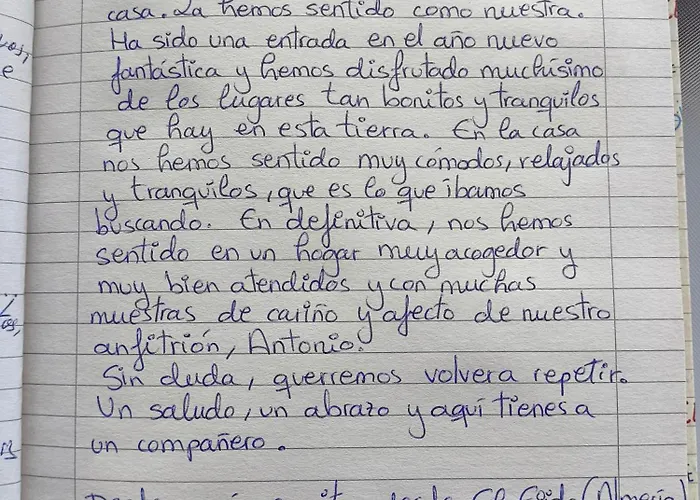 casa. La hemos sentido como nuestra.
Ha sido una entrada en el año nuevo
fantástica y hemos disfrutado muchísimo
de los lugares tan bonitos y tranquilos
que hay en esta tierra. En la casa
nos hemos sentido muy cómodos, relajados
y tranquilos, que es lo que íbamos
buscando. En definitiva, nos hemos
sentido en un hogar muy acogedor y
muy bien atendidos y con muchas
muestras de cariño y afecto de nuestro
anfitrión, Antonio.
Sin duda, querremos volver a repetir.
Un saludo, un abrazo y aquí tienes a
un compañero.